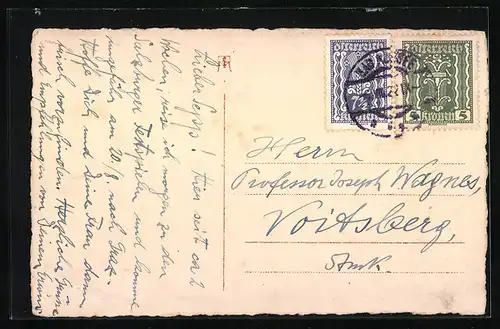 Lieber Sepp! Hier seit ca 2
Wochen, reise ich morgen zu den
Salzburger Festspielen und komme
ungefähr am 20/8. nach Graz.
Hoffe Dich und deine Frau dann
frisch vorzufinden. Herzliche Grüsse
und Empfehlungen von Deinem
Österreich
Österreich
Kronen
5
Herrn
Professor Joseph Wagnes,
Voitsberg,
Stmk